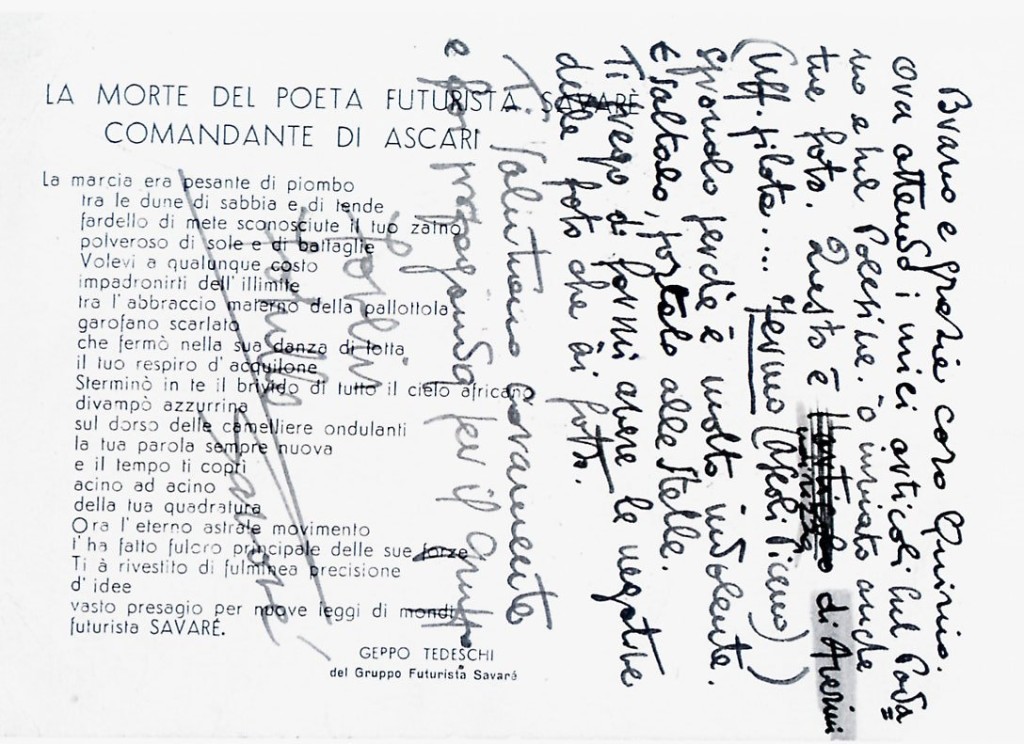 LA MORTE DEL POETA FUTURISTA SAVARÈ
COMANDANTE DI ASCARI
La marcia era pesante di piombo
tra le dune di sabbia e di tende
fardello di mete sconosciute il tuo zaino
polveroso di sole e di battaglie
Volevi a qualunque costo
impadronirti dell'illimite
tra l'abbraccio materno della pallottola
garofano scarlato
che fermò nella sua danza di lotta
il tuo respiro d'aquilone
Sterminò in te il brivido di tutto il cielo africano
divampò azzurrina
sul dorso delle camelliere ondulanti
la tua parola sempre nuova
e il tempo ti coprì
acino ad acino
della tua quadratura
Ora l'eterno astrale movimento
t'ha fatto fulcro principale delle sue forze
Ti à rivestito di fulminea precisione
d'idee
vasto presagio per nuove leggi di mondi
futurista SAVARÉ.
GEPPO TEDESCHI
del Gruppo Futurista Savaré
Bravo e grazie caro Quirino.
Ora attendo i miei articoli sul Pada=
no e sul Polesine. ò inviato anche
tue foto. Questo è indirizzo di
(Uff. pilota.... Fermo (Ascoli Piceno)
Spronalo perchè è molto indolente.
Esaltalo, portalo alle stelle.
Ti prego di farmi avere le negative
delle foto che ài fatto.
Ti saluto caramente
e per propaganda per il Gruppo
Savarè